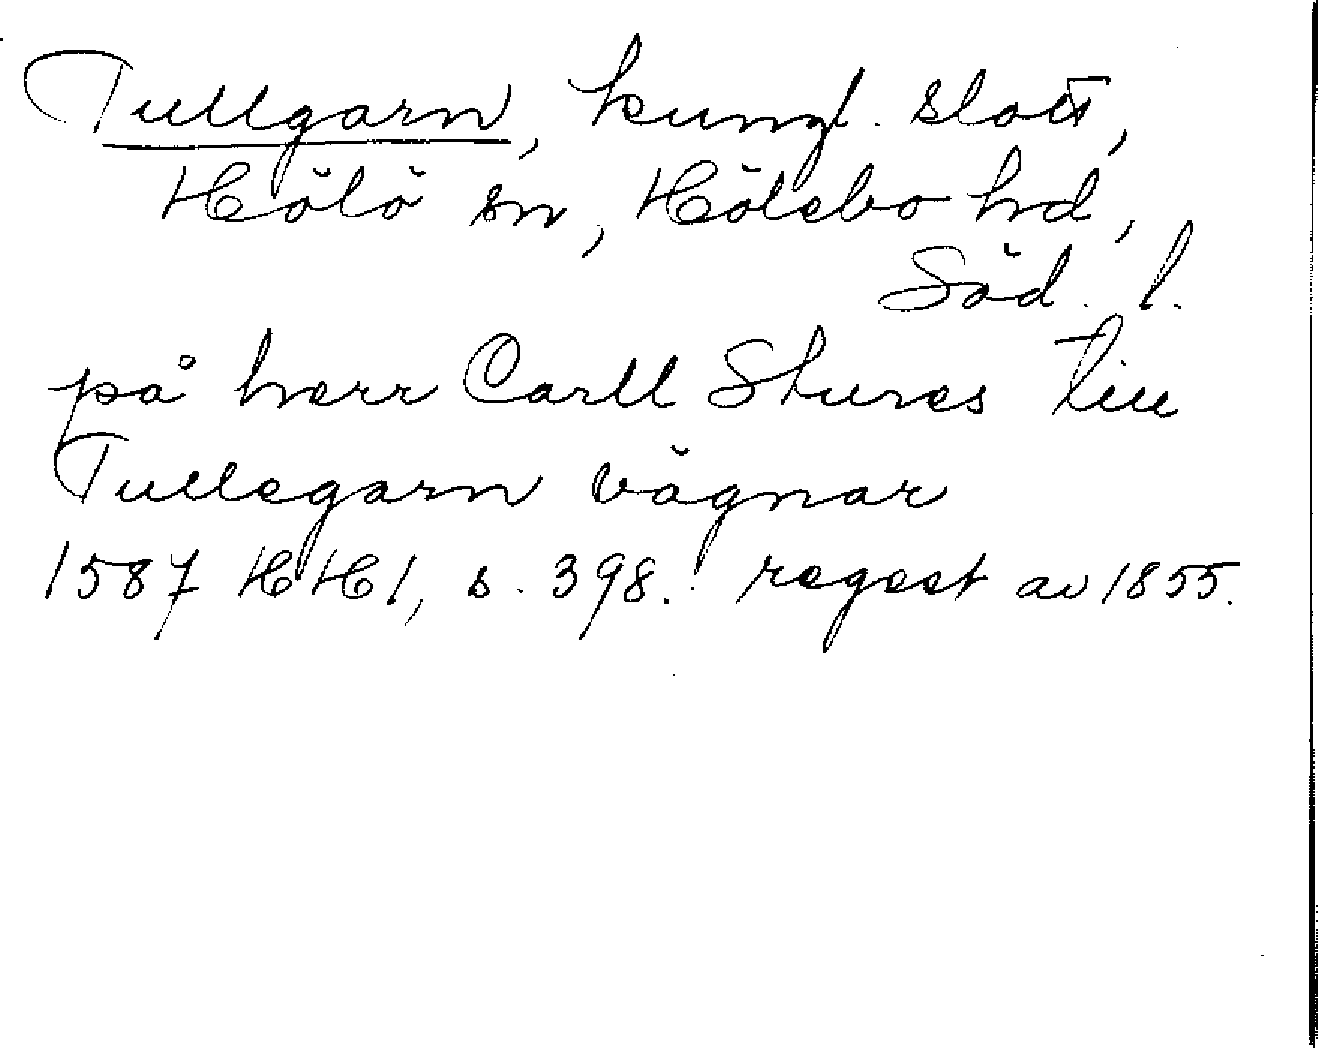 Tullgarn, kungl. slott,
Hölö sn, Hölebo hd,
Söd. l.
på herr Carll Stures till
Tullegarn vägnar
1587 HH1, s. 398. regest av 1855.